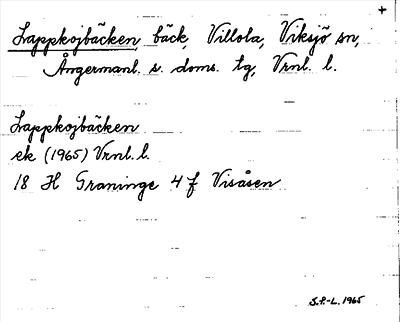 +
Lappkojbäcken bäck, Villola, Viksjö sn,
Ångermanl. s. doms. tg, Vrnl. l.
Lappkojbäcken
ek (1965) Vrnl. l.
18 H Graninge 4 f Visåsen
S.P.-L. 1965